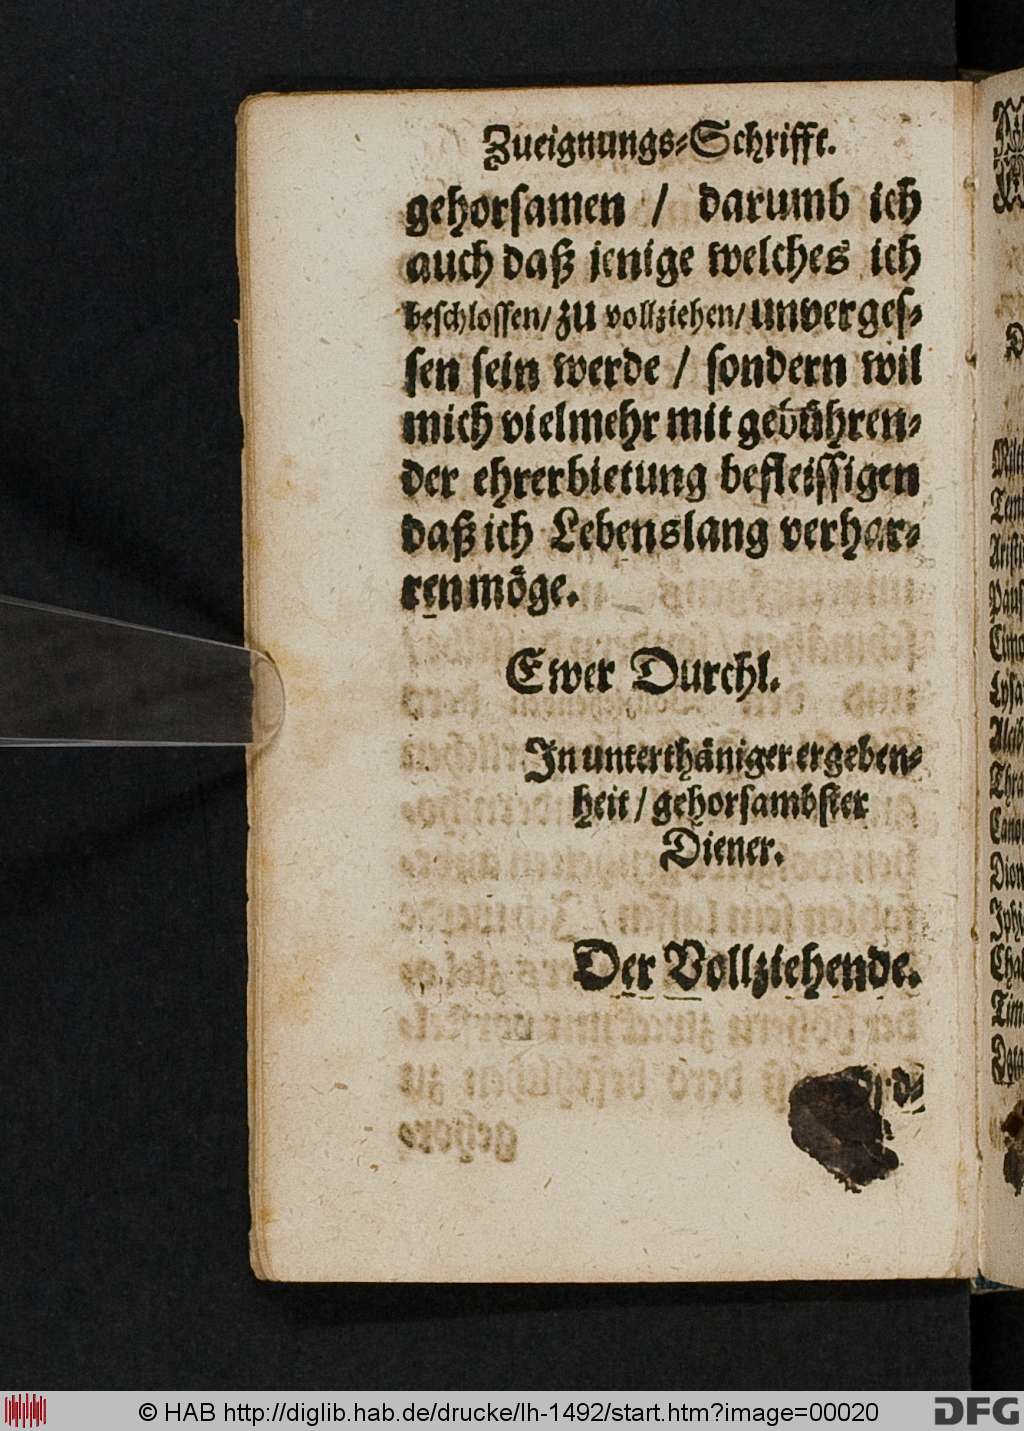 Zueignungs-Schrifft.
gehorsamen / darumb ich
auch daß jenige welches ich
beschlossen / zu vollziehen / unverges-
sen sein werde / sondern wil
mich vielmehr mit gebühren-
der ehrerbietung befleissigen
daß ich Lebenslang verhar-
ren möge.
Ewer Durchl.
In unterthäniger ergeben-
heit / gehorsambster
Diener.
Der Vollziehende.
© HAB http://diglib.hab.de/drucke/lh-1492/start.htm?image=00020
DFG